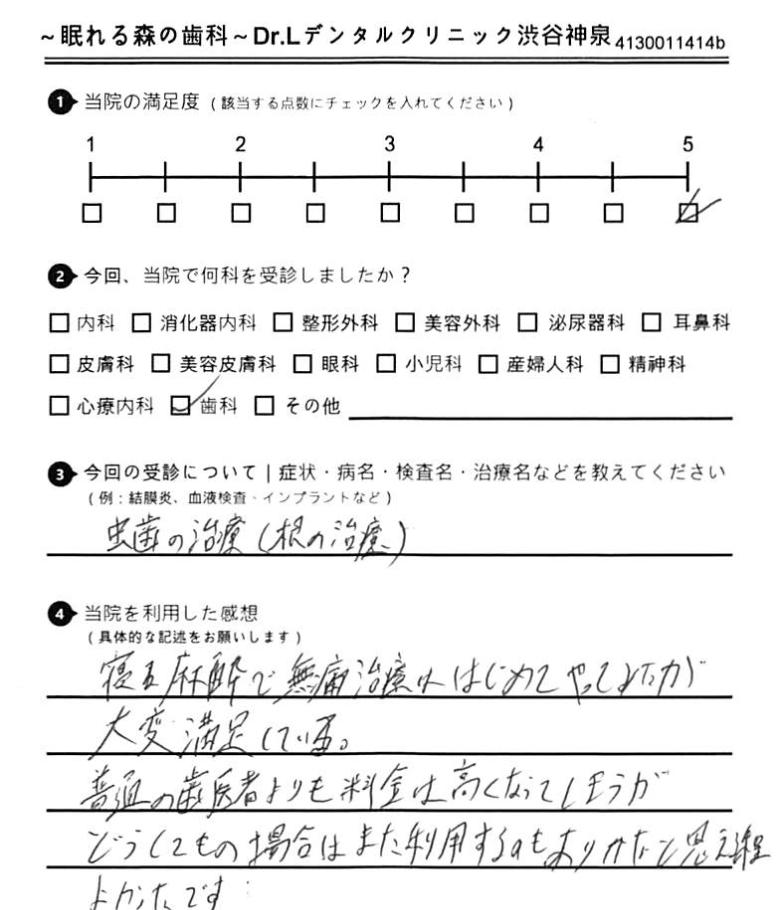 ~眠れる森の歯科~Dr.Lデンタルクリニック渋谷神泉 4130011414b
1 当院の満足度 (該当する点数にチェックを入れてください)
1 2 3 4 5
2 今回、当院で何科を受診しましたか?
内科 消化器内科 整形外科 美容外科 泌尿器科 耳鼻科
皮膚科 美容皮膚科 眼科 小児科 産婦人科 精神科
心療内科 歯科 その他
3 今回の受診について|症状・病名・検査名・治療名などを教えてください
(例:結膜炎、血液検査・インプラントなど)
虫歯の治療(根の治療)
4 当院を利用した感想
(具体的な記述をお願いします)
寝る麻酔で無痛治療ははじめてやってみたが
大変満足している。
普通の歯医者よりも料金は高くなってしまうが
どうしてもの場合はまた利用するのもありかなと思える程
よかったです